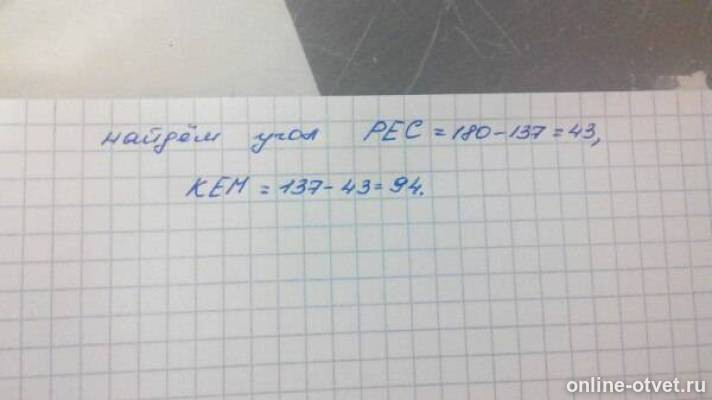 найдём угол PEC = 180 - 137 = 43,
KEM = 137 - 43 = 94.
online-otvet.ru